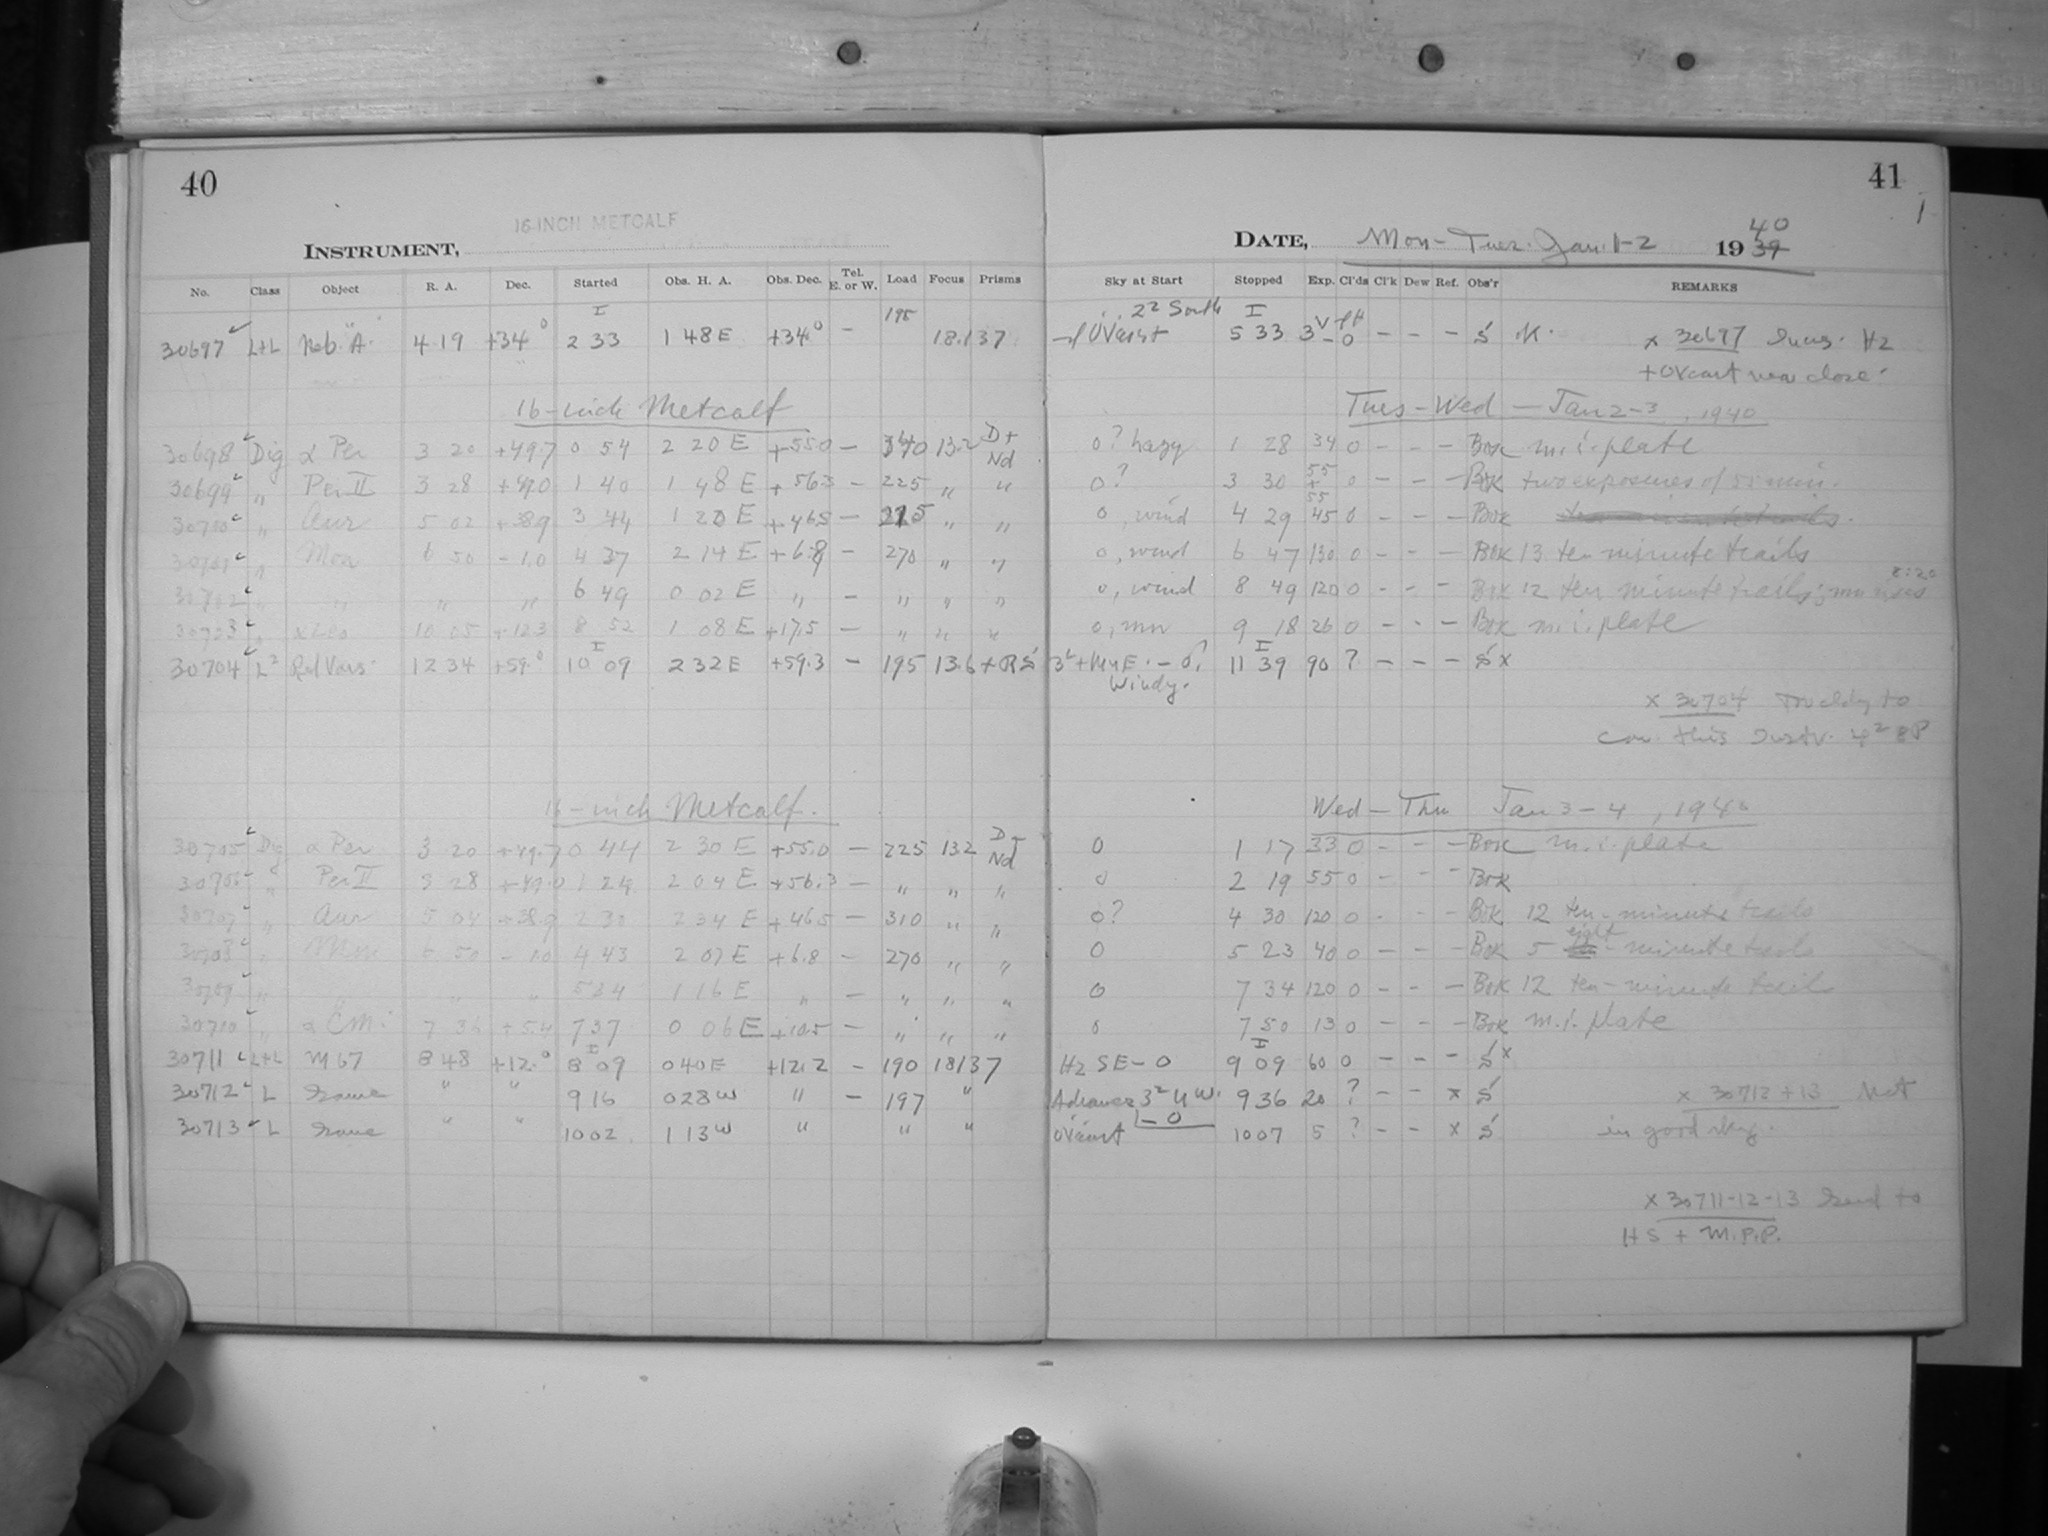 40
41
1
16-INCH METCALF
INSTRUMENT,
DATE, Mon - Tues. Jan. 1-2 1939 40
No. Class Object R. A. Dec. Started Obs. H. A. Obs. Dec. Tel. E. or W. Load Focus Prisms Sky at Start Stopped Exp. Cl'ds Cl'k Dew Ref. Obs'r REMARKS
30697 L+L Neb. "A" 4 19 +34° 2 33 1 48 E +34° - 195 18.137 2² South Ovcast 5 33 3 - 0 - - - S x 30697 Hz
+ Ovcast near close.
16-inch Metcalf Tues - Wed - Jan 2-3, 1940
30698 Dig α Per 3 20 +49.7 0 54 2 20 E +55.0 - 340 13.2 D+ Nd 0? hazy 1 28 34 0 - - - Bok m.i. plate
30699 " Per II 3 28 +49.0 1 40 1 48 E +56.3 - 225 " " 0? 3 30 55 + 55 0 - - - Bok two exposures of 55 min.
30700 " Aur 5 02 +38.9 3 44 1 20 E +46.5 - 225 " " 0, wind 4 29 45 0 - - - Bok
30701 " Mon 6 50 -1.0 4 37 2 14 E +6.8 - 270 " " 0, wind 6 47 130 0 - - - Bok 13 ten minute trails
30702 " " " " 6 49 0 02 E " - " " " 0, wind 8 49 120 0 - - - Bok 12 ten minute trails; mn rises 8:20
30703 " x Leo 10 05 +12.3 8 52 1 08 E +17.5 - " " " 0, mn 9 18 26 0 - - - Bok m.i. plate
30704 L² Red Vars. 12 34 +59.0 10 09 2 32 E +59.3 - 195 13.6 + RS 3²+Mn E. - 0? Windy. 11 39 90 ? - - - S x
x 30704
16-inch Metcalf. Wed - Thu Jan 3-4, 1940
30705 Dig α Per 3 20 +49.7 0 44 2 30 E +55.0 - 225 13.2 D+ Nd 0 1 17 33 0 - - - Bok m.i. plate
30706 " Per II 3 28 +49.0 1 24 2 04 E +56.3 - " " " 0 2 19 55 0 - - - Bok
30707 " Aur 5 04 +38.9 2 30 2 34 E +46.5 - 310 " " 0? 4 30 120 0 - - - Bok 12 ten-minute trails
30708 " Mon 6 50 -1.0 4 43 2 07 E +6.8 - 270 " " 0 5 23 40 0 - - - Bok 5 eight-minute trails
30709 " " " 5 34 1 16 E " - " " " 0 7 34 120 0 - - - Bok 12 ten-minute trails
30710 " α CMi 7 36 +5.4 7 37 0 06 E +10.5 - " " " 0 7 50 13 0 - - - Bok m.i. plate
30711 L+L M 67 8 48 +12.0 8 09 0 40 E +12.2 - 190 18137 Hz SE - 0 9 09 60 0 - - - S x
30712 L Same " " 9 16 0 28 W " - 197 " 3² NW. - 0 9 36 20 ? - - x S x 30712+13 Not
30713 L Same " " 10 02 1 13 W " " " Ovcast 10 07 5 ? - - x S in good sky.
x 30711-12-13 Send to
HS + M.P.P.